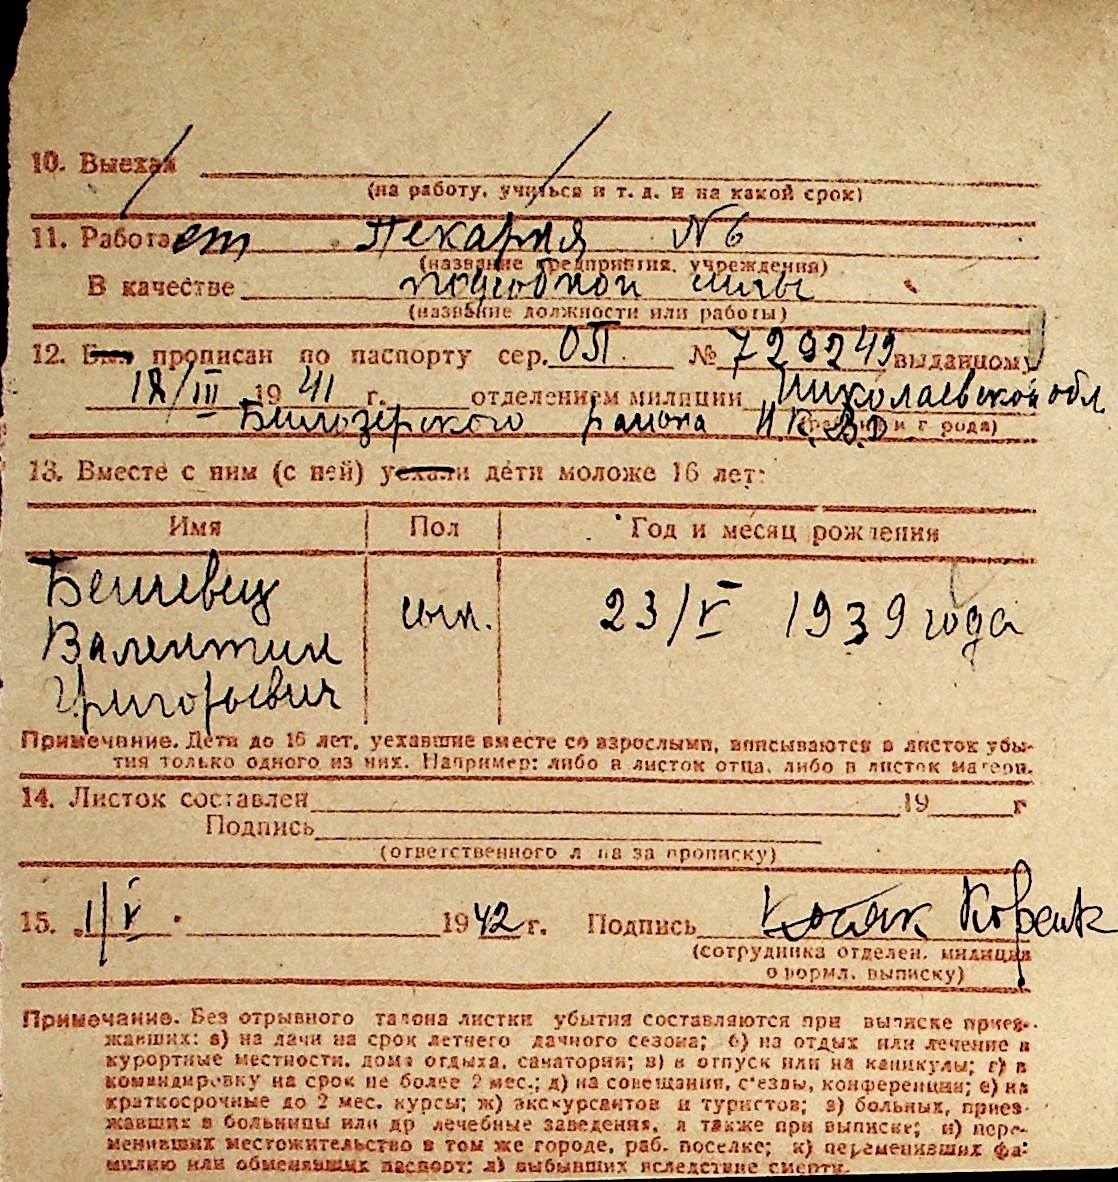 10. Выехал
(на работу, учиться и т. д. и на какой срок)
11. Работает Пекарня № 6
(название предприятия, учреждения)
В качестве подсобной силы
(название должности или работы)
12. Был прописан по паспорту сер. ОП. № 729249 выданному
18/III 1941 г. отделением милиции Николаевской обл.
Билозерского района Н.К.В.Д
13. Вместе с ним (с ней) уехали дети моложе 16 лет:
Имя Пол Год и месяц рождения
Бешевец
Валентин сын. 23/V 1939 года
Григорьевич
Примечание. Дети до 16 лет, уехавшие вместе со взрослыми, вписываются в листок убы-
тия только одного из них. Например: либо в листок отца, либо в листок матери.
14. Листок составлен 19 г
Подпись
(ответственного лица за прописку)
15. 1/V 1942 г. Подпись
(сотрудника отделен. милиции
оформл. выписку)
Примечание. Без отрывного талона листки убытия составляются при выписке приез-
жавших: а) на дачи на срок летнего дачного сезона; б) на отдых или лечение в
курортные местности, дома отдыха, санатории; в) в отпуск или на каникулы; г) в
командировку на срок не более 2 мес.; д) на совещания, с'езды, конференции; е) на
краткосрочные до 2 мес. курсы; ж) экскурсантов и туристов; з) больных, приез-
жавших в больницы или др лечебные заведения, а также при выписке; и) пере-
менивших местожительство в том же городе, раб. поселке; к) переменивших фа-
милию или обменявших паспорт; л) выбывших вследствие смерти.